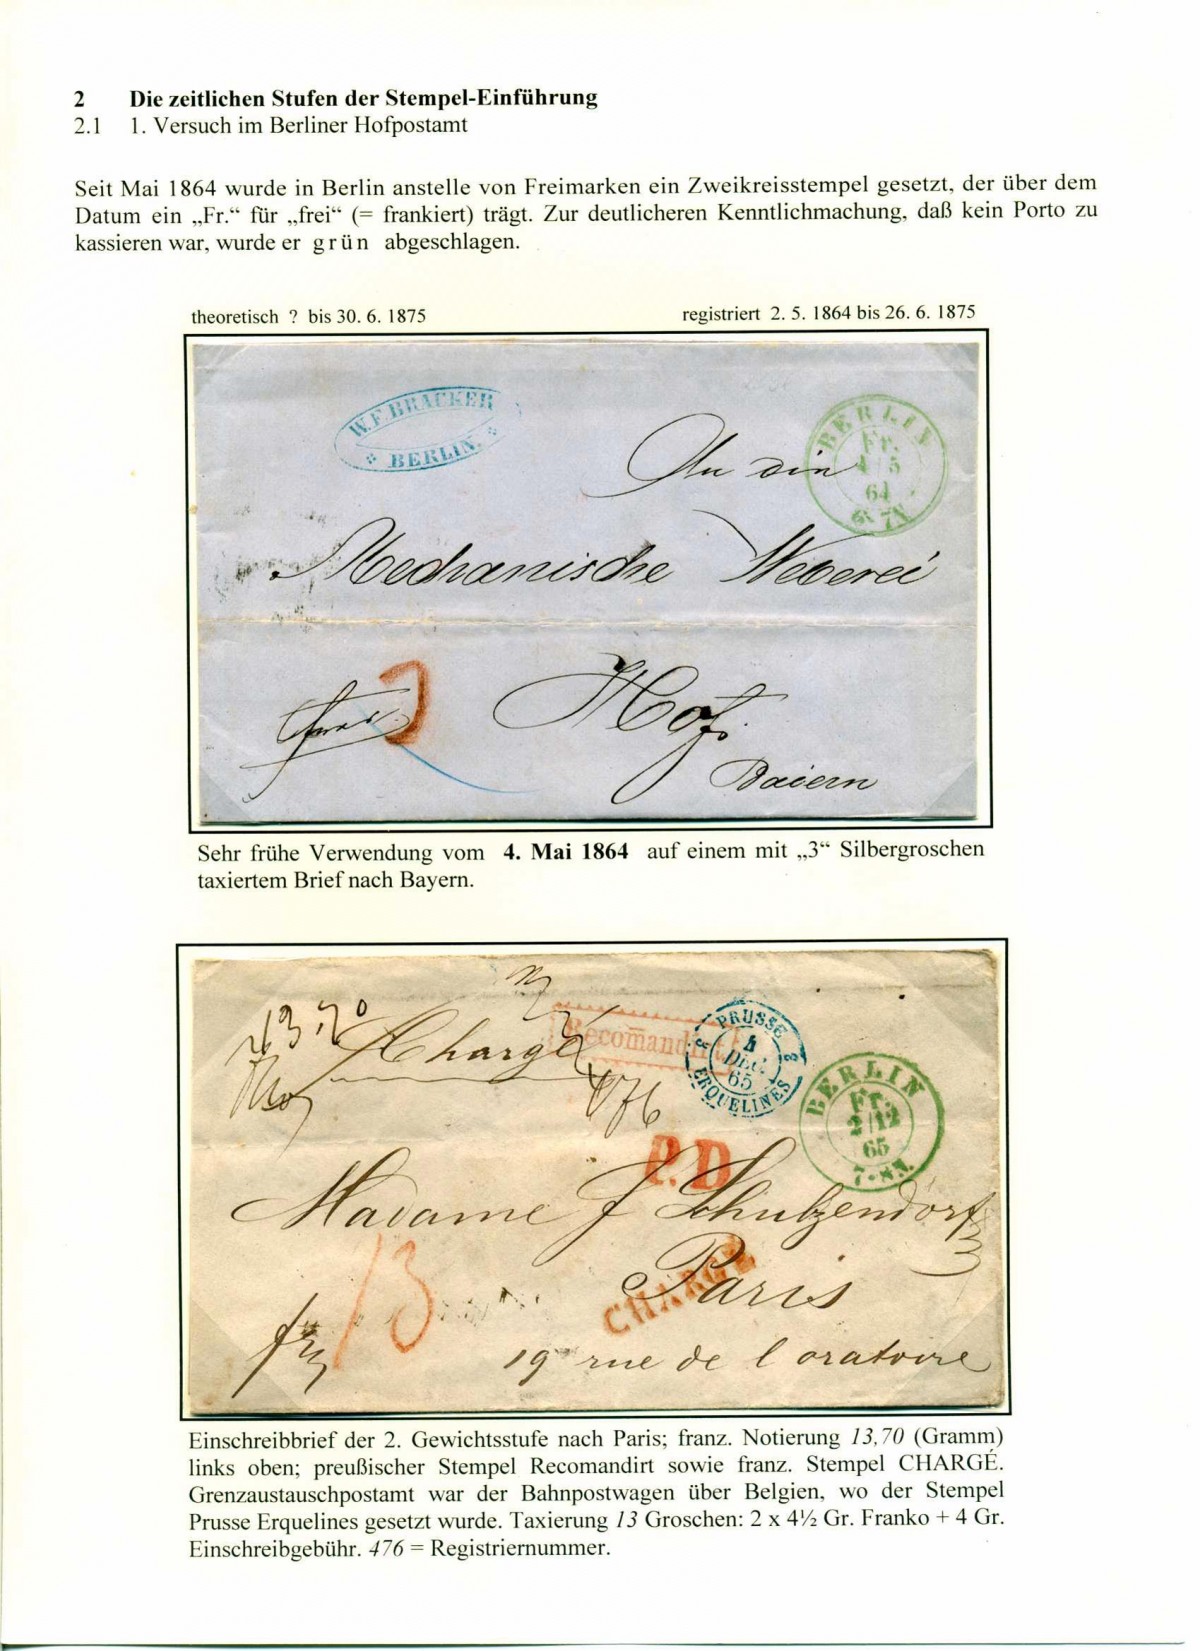 2 Die zeitlichen Stufen der Stempel-Einführung
2.1 1. Versuch im Berliner Hofpostamt
Seit Mai 1864 wurde in Berlin anstelle von Freimarken ein Zweikreisstempel gesetzt, der über dem
Datum ein „Fr.“ für „frei“ (= frankiert) trägt. Zur deutlicheren Kenntlichmachung, daß kein Porto zu
kassieren war, wurde er grün abgeschlagen.
theoretisch ? bis 30. 6. 1875
registriert 2. 5. 1864 bis 26. 6. 1875
W. F. BRACKER
BERLIN.
BERLIN
Fr.
4/5
64
6-7N
An die
Mechanische Weberei
3
Hof.
Baiern
Sehr frühe Verwendung vom 4. Mai 1864 auf einem mit „3“ Silbergroschen
taxiertem Brief nach Bayern.
13.70
Chargé
Recomandirt
PRUSSE
4
DÉC.
65
ERQUELINES
476
BERLIN
Fr.
2/12
65
7-8N.
P.D
Madame J Schulzendorf
Paris
CHARGÉ
13
19 rue de l'oratoire
Einschreibbrief der 2. Gewichtsstufe nach Paris; franz. Notierung 13,70 (Gramm)
links oben; preußischer Stempel Recomandirt sowie franz. Stempel CHARGÉ.
Grenzaustauschpostamt war der Bahnpostwagen über Belgien, wo der Stempel
Prusse Erquelines gesetzt wurde. Taxierung 13 Groschen: 2 x 4½ Gr. Franko + 4 Gr.
Einschreibgebühr. 476 = Registriernummer.